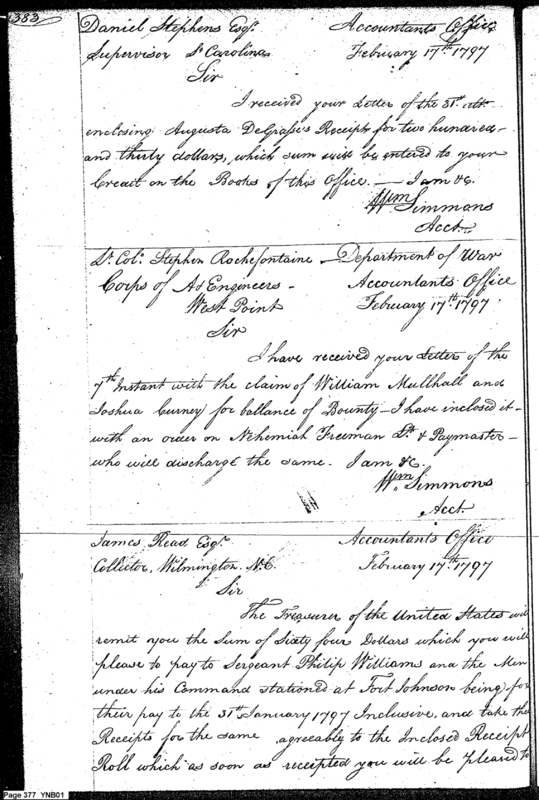 383
Daniel Stephens Esqr. Accountants Office
Supervisor So. Carolina February 17th. 1797
Sir
I received your Letter of the 31st. ult.
enclosing Augusta DeGrasse's Receipt for two hundred
and thirty dollars, which sum will be entered to your
Credit on the Books of this Office. — I am &c.
Wm Simmons
Acct.
Lt. Colo. Stephen Rochefontaine — Department of War
Corps of A & Engineers — Accountants Office
West Point February 17th. 1797
Sir
I have received your Letter of the
7th Instant with the claim of William Mullhall and
Joshua Curney for ballance of Bounty — I have inclosed it
with an order on Nehemiah Freeman Lt. & Paymaster —
who will discharge the same. I am &c.
Wm. Simmons
Acct.
James Read Esqr. Accountants Office
Collector, Wilmington. N.C. February 17th. 1797
Sir
The Treasurer of the United States will
remit you the Sum of Sixty four Dollars which you will
please to pay to Sergeant Philip Williams and the Men
under his Command stationed at Fort Johnson being for
their pay to the 31st January 1797 Inclusive, and take the
Receipts for the same agreeably to the Inclosed Receipt
Roll which as soon as receipted you will be pleased to
Page 377 YNB01